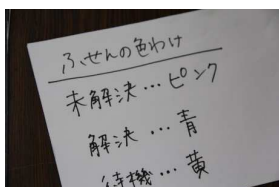 ふせんの色わけ
未解決…ピンク
解決…青
待機…黄